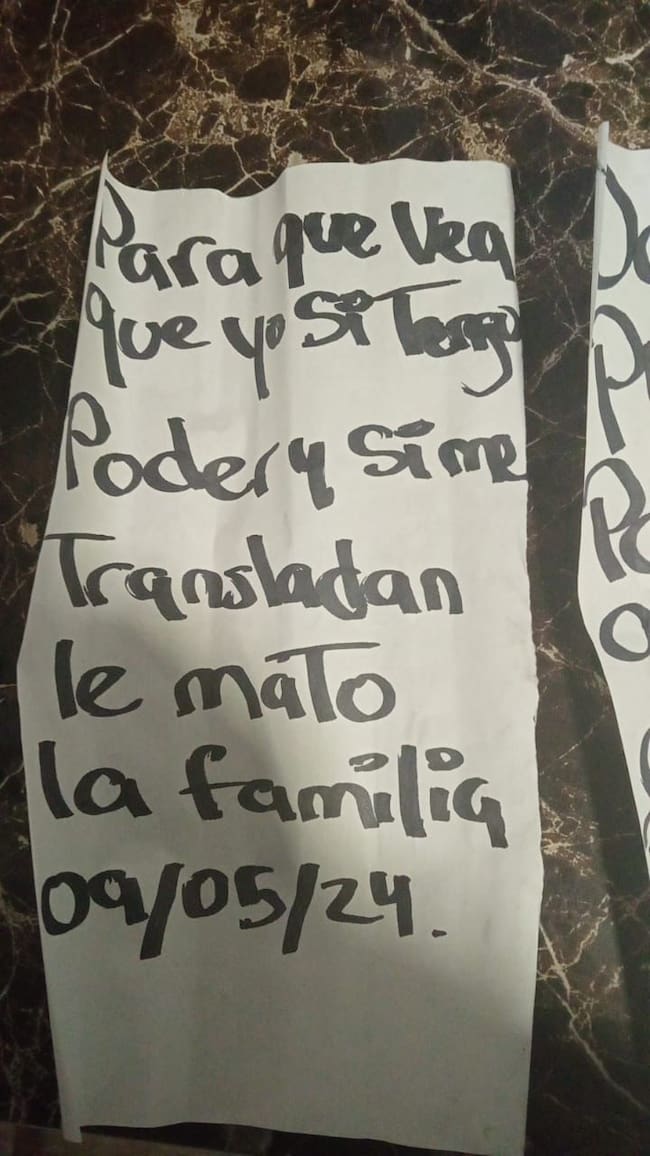 Para que Vea
que yo Si Tengo
Poder y Si me
Transladan
le mato
la familia
09/05/24.